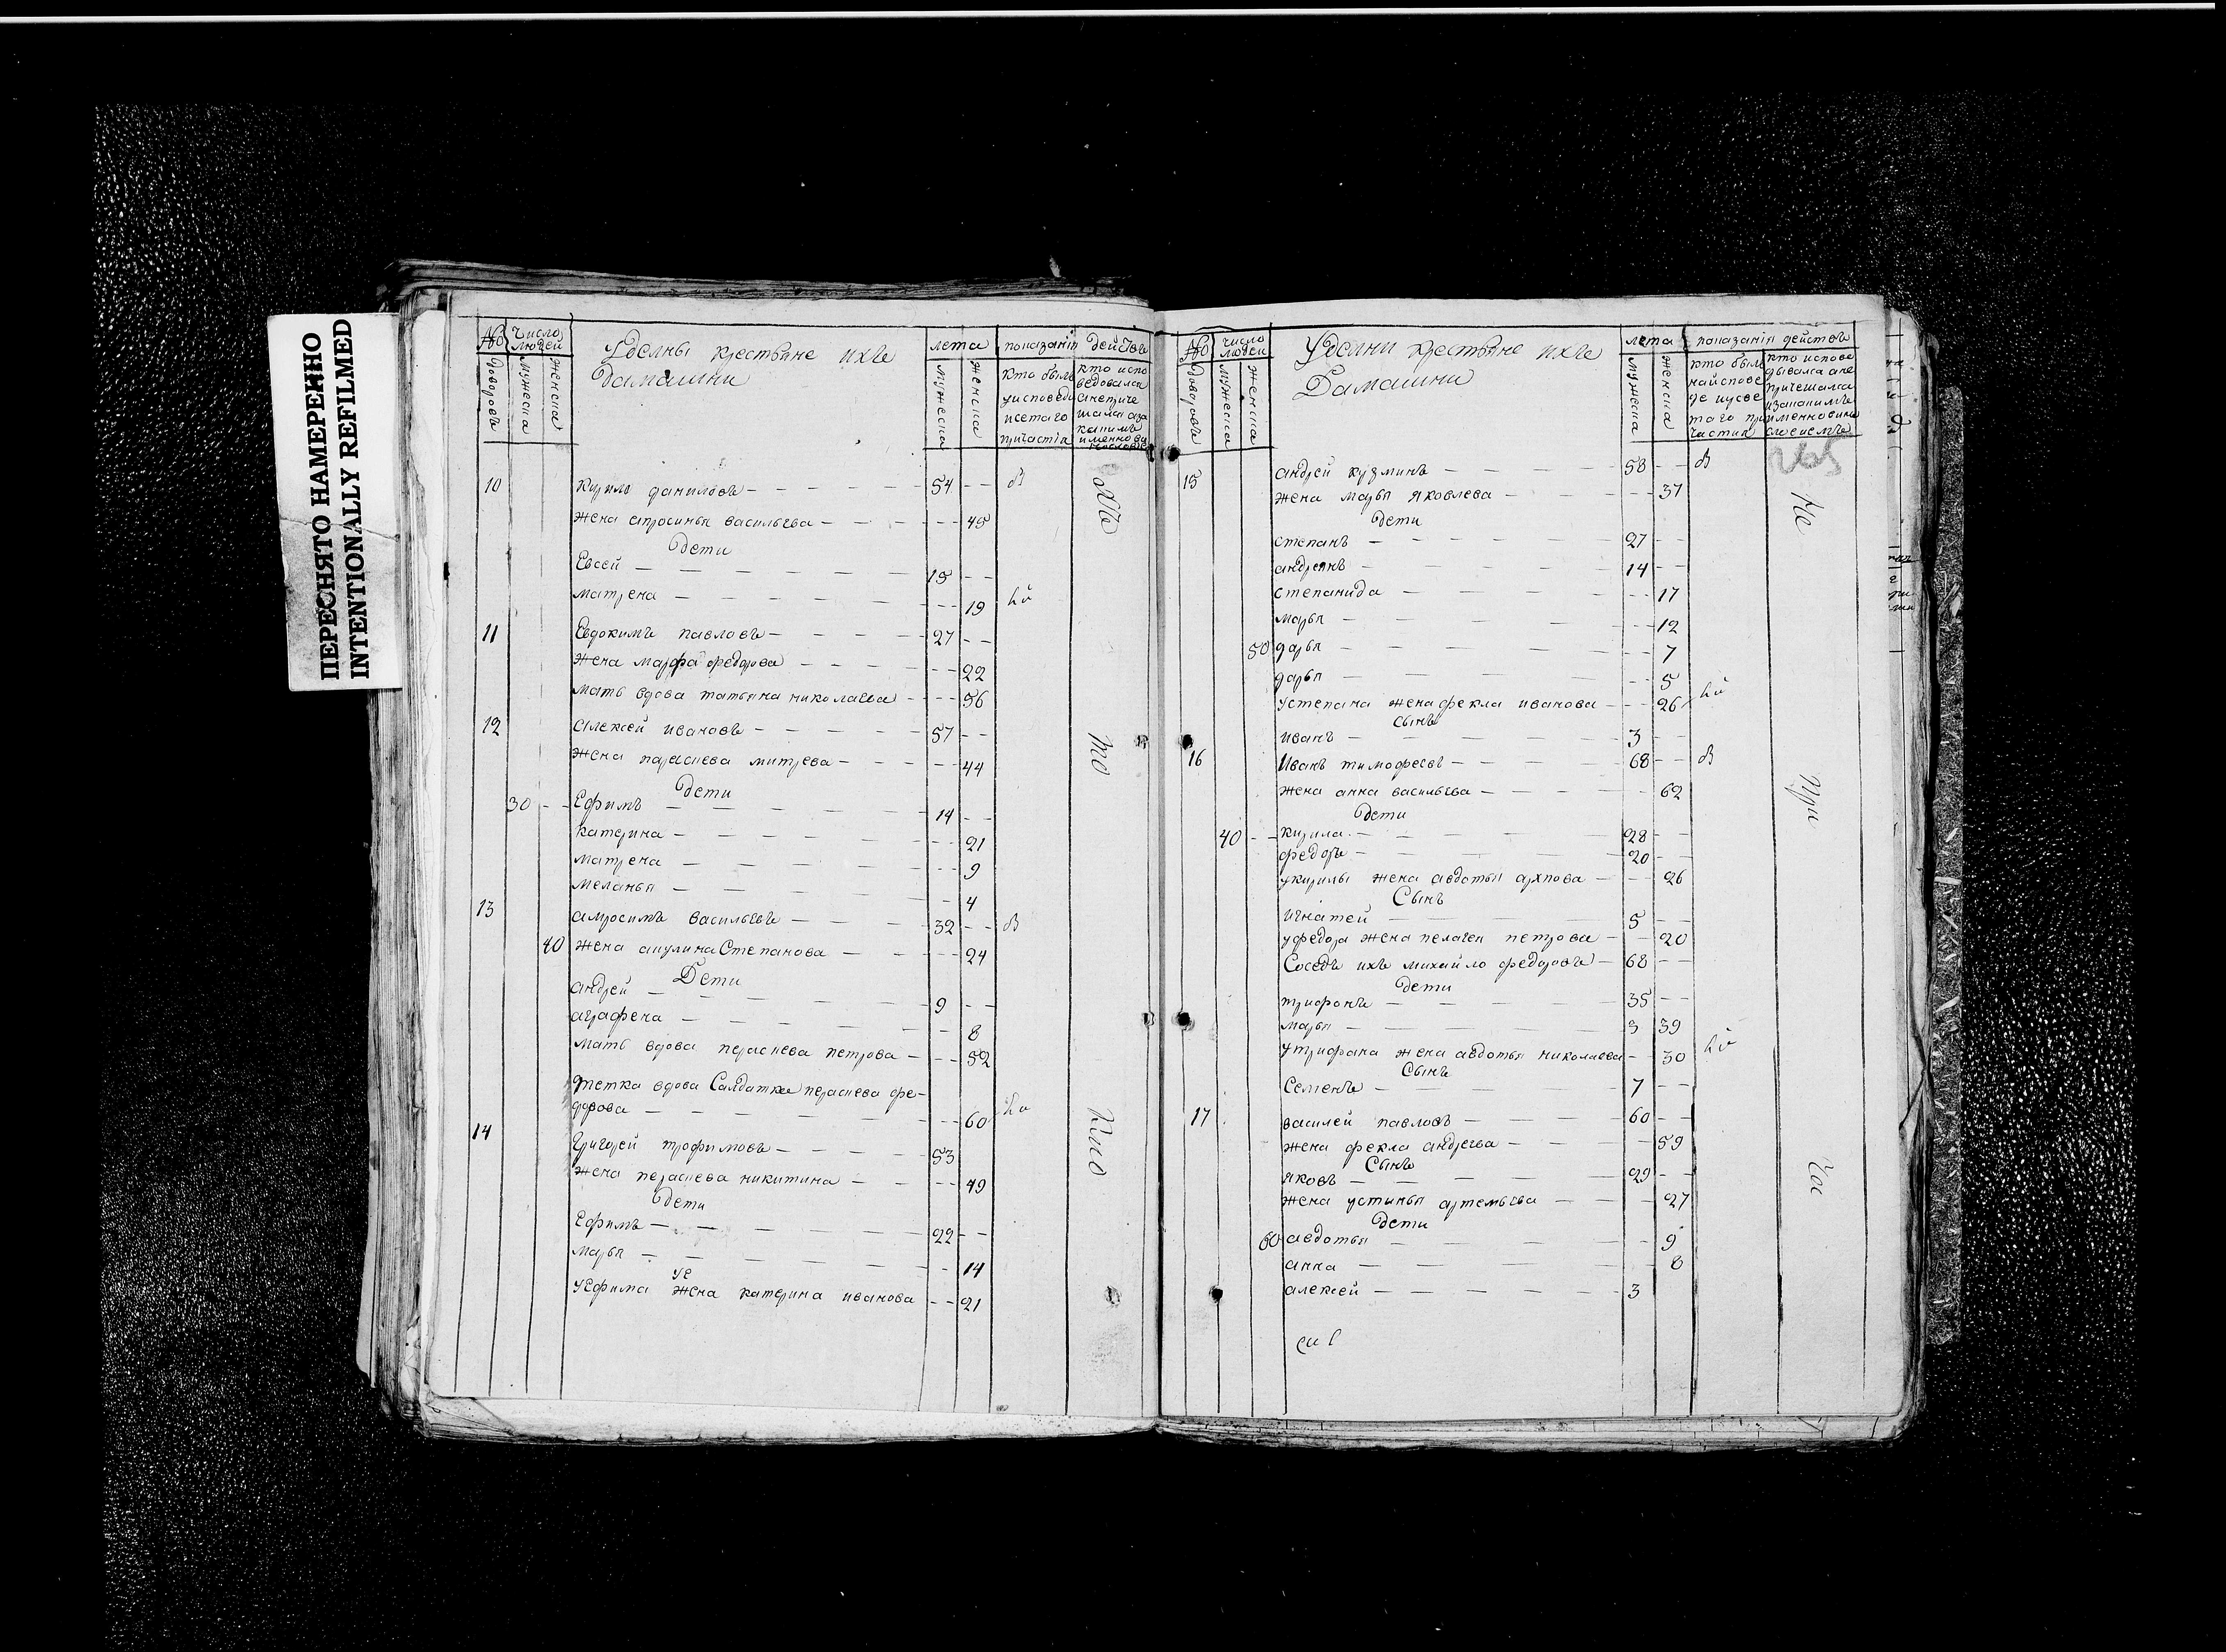 ПЕРЕСНЯТО НАМЕРЕННО
INTENTIONALLY REFILMED
№ Число людей Уделны крестьяне ихъ дамашни лета показанiи дейтвъ
дворовъ мужеска женска мужеска женска
кто былъ у исповеди
причастiя
10 Кирило даниловъ 54
жена апросинья васильева 45
дети
Евсей 15
матрена 19
11 Евдокимъ павловъ 27
жена марфа федорова 22
мать вдова татьяна николаева 56
12 алексей ивановъ 57
жена парасиева митрева 44
дети
30 Ефимъ 14
катерина 21
матрена 9
меланья 4
13 амросимъ васильевъ 32
40 жена акулина Степанова 24
Дети
андрей 9
аграфена 8
мать вдова параскева петрова 52
тетка вдова Салдатка параскева фе-
дорова 60
14 григорей трофимовъ 53
жена параскева никитина 49
дети
Ефимъ 22
марья 14
уе
уефима жена катерина иванова 21
№ число людей Уделни крестьяне ихъ Дамашни лета показанiя действъ
дворовъ мужеска женска мужеска женска
265
15 андрей кузминъ 58
жена марья яковлева 37
дети
степанъ 27
андреянъ 14
степанида 17
марья 12
50 дарья 7
дарья 5
устепана жена фекла иванова 26
сынъ
иванъ 3
16 Иванъ тимофеевъ 68
жена анна васильева 62
дети
40 кирила 28
федоръ 20
укирилы жена авдотья архпова 26
Сынъ
игнатей 5
уфедора жена пелагея петрова 20
Соседъ ихъ михайло федоровъ 68
дети
трифонъ 35
марья 3 39
утрифана жена авдотья николаева 30
Сынъ
Семенъ 7
17 василей павловъ 60
жена фекла андреева 59
Сынъ
яковъ 29
жена устинья артемьева 27
дети
60 авдотья 9
анна 8
алексей 3
Не
При
Чос